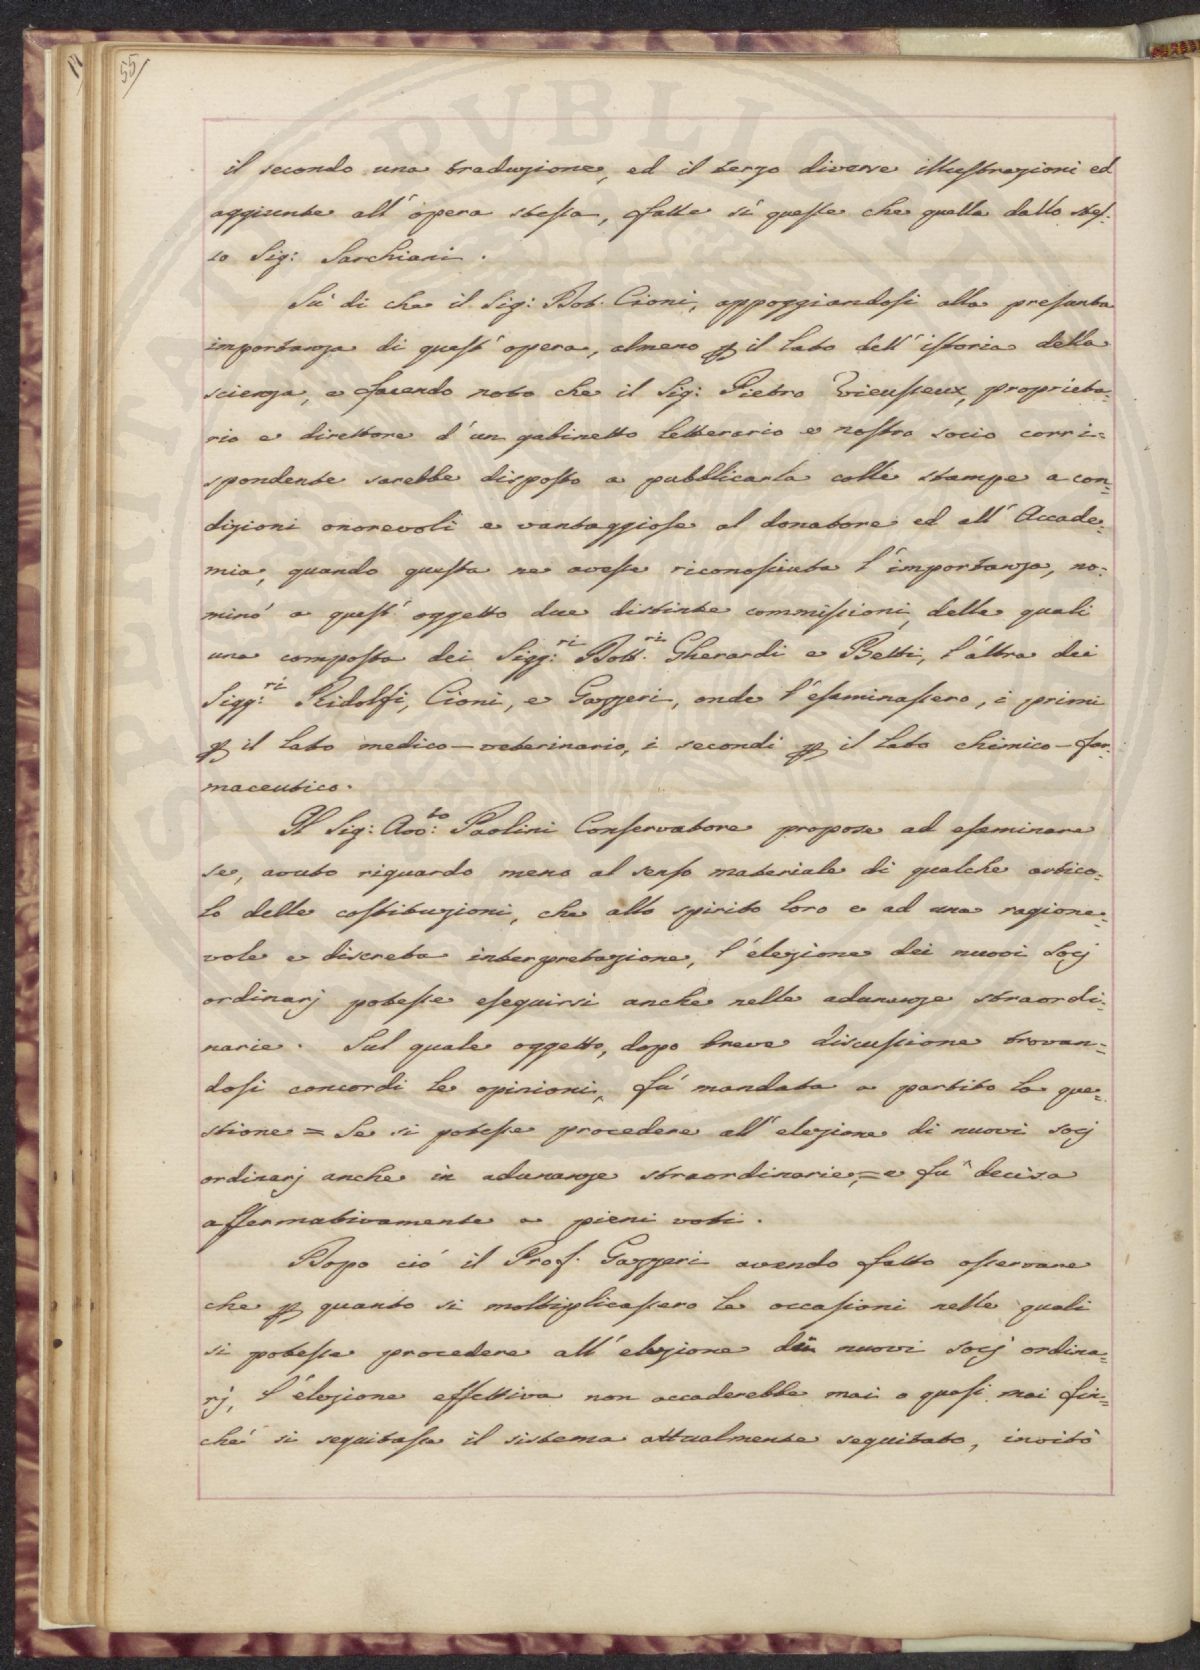 55/
il secondo una traduzione, ed il terzo diverse illustrazioni ed
aggiunte all'opera stessa, fatte sì queste che quella dallo stes=
so Sig: Sarchiani.
Sù di che il Sig: Dot. Cioni, appoggiandosi alla presunta
importanza di quest'opera, almeno p il lato dell'istoria della
scienza, e facendo noto che il Sig: Pietro Vieusseux, proprieta=
rio e direttore d'un gabinetto letterario e nostro socio corri=
spondente sarebbe disposto a pubblicarla colle stampe a con=
dizioni onorevoli e vantaggiose al donatore ed all'Accade=
mia, quando questa ne avesse riconosciuta l'importanza, no=
minò a quest'oggetto due distinte commissioni, delle quali
una composta dei Sigg:ri Dott.ri Gherardi e Betti, l'altra dei
Sigg:ri Ridolfi, Cioni, e Gazzeri, onde l'esaminassero, i primi
p il lato medico-veterinario, i secondi p il lato chimico-far=
maceutico.
Il Sig: Avv:to Paolini Conservatore propose ad esaminare
se, avuto riguardo meno al senso materiale di qualche artico=
lo delle costituzioni, che allo spirito loro e ad una ragione=
vole e discreta interpretazione, l'elezione dei nuovi socj
ordinarj potesse eseguirsi anche nelle adunanze straordi=
narie. Sul quale oggetto, dopo breve discussione trovan=
dosi concordi le opinioni, fù mandata a partito la que=
stione = Se si potesse procedere all'elezione di nuovi socj
ordinarj anche in adunanze straordinarie, = e fu decisa
affermativamente a pieni voti.
Dopo ciò il Prof. Gazzeri avendo fatto osservare
che p quanto si moltiplicassero le occasioni nelle quali
si potesse procedere all'elezione di nuovi socj ordina=
rj, l'elezione effettiva non accaderebbe mai o quasi mai fin=
ché si seguitasse il sistema attualmente seguitato, invitò